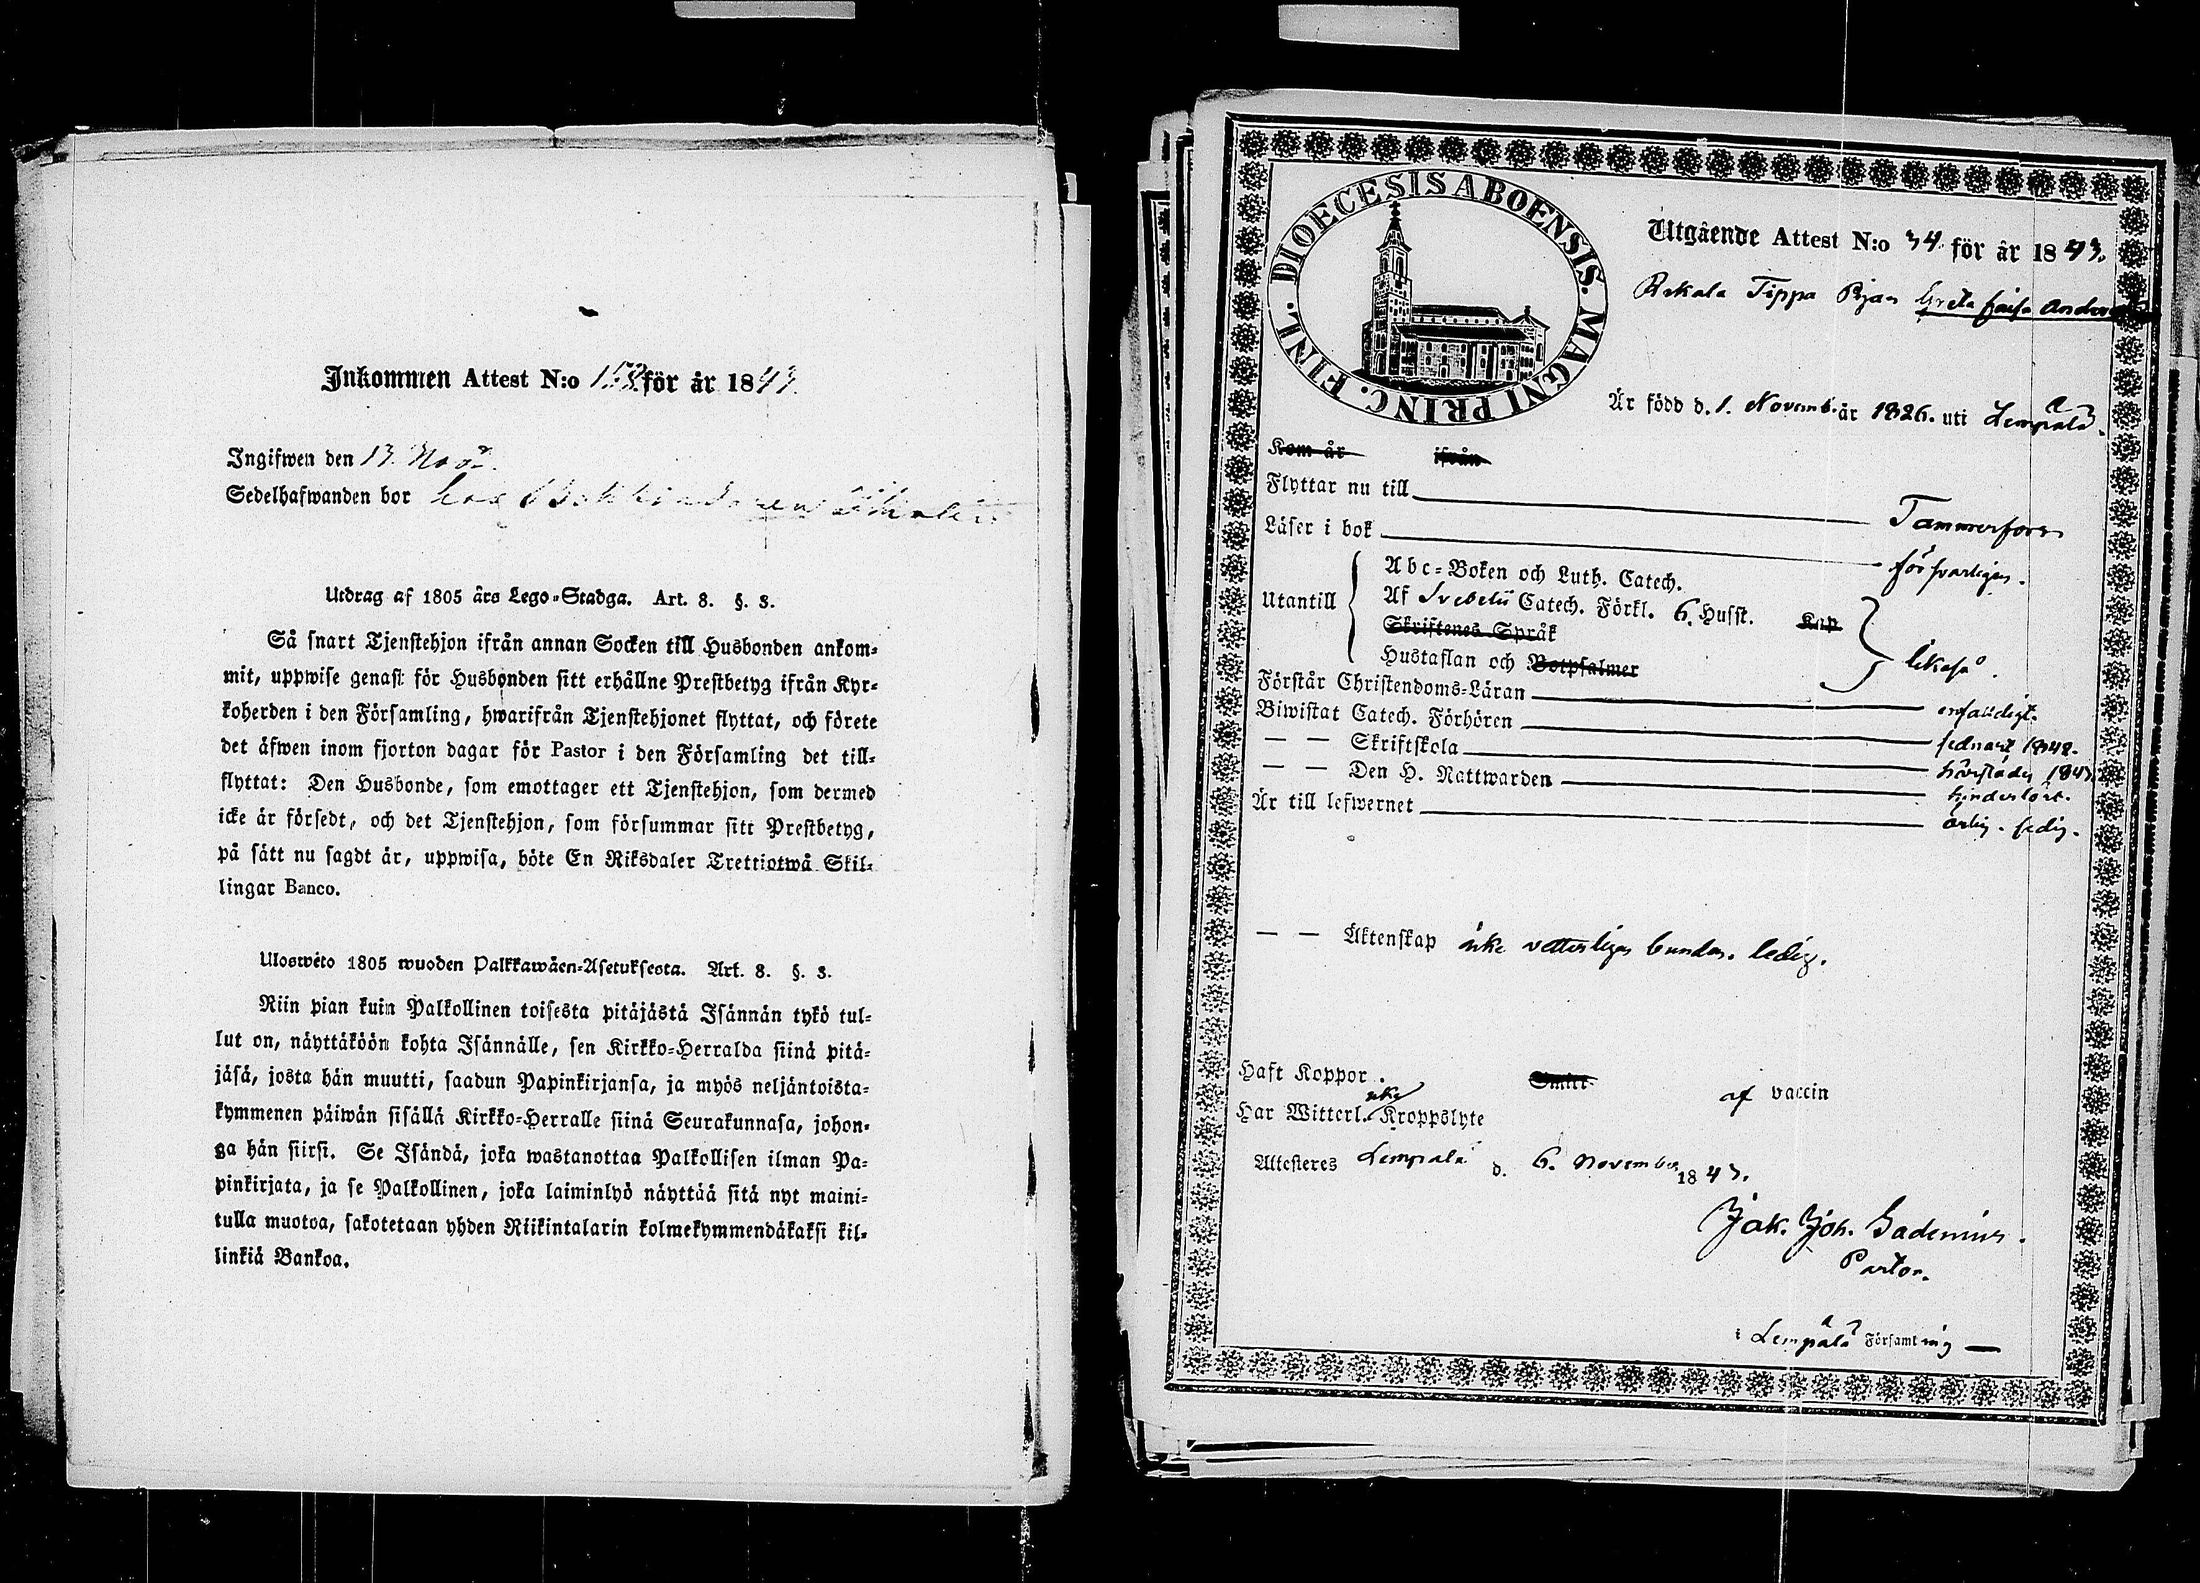 Inkommen Attest N:o 158 för år 1843.
Ingifwen den 13. Nov
Sedelhafwanden bor hos
Utdrag af 1805 års Lego-Stadga. Art. 8. §. 3.
Så snart Tjenstehjon ifrån annan Socken till Husbonden ankom-
mit, uppwise genast för Husbonden sitt erhållne Prestbetyg ifrån Kyr-
koherden i den Församling, hwarifrån Tjenstehjonet flyttat, och förete
det äfwen inom fjorton dagar för Pastor i den Församling det till-
flyttat: Den Husbonde, som emottager ett Tjenstehjon, som dermed
icke är försedt, och det Tjenstehjon, som försummar sitt Prestbetyg,
på sätt nu sagdt är, uppwisa, böte En Riksdaler Trettiotwå Skil-
lingar Banco.
Uloswéto 1805 wuoden Palkkawäen-Asetuksesta. Art. 8. §. 3.
Niin pian kuin Palkollinen toisesta pitäjästä Isännän tykö tul-
lut on, näyttäköön kohta Isännälle, sen Kirkko-Herralda siinä pitä-
jäsä, josta hän muutti, saadun Papinkirjansa, ja myös neljäntoista-
kymmenen päiwän sisällä Kirkko-Herralle siinä Seurakunnasa, johon-
ga hän siirsi. Se Isändä, joka wastanottaa Palkollisen ilman Pa-
pinkirjata, ja se Palkollinen, joka laiminlyö näyttää sitä nyt maini-
tulla muotoa, sakotetaan yhden Riikintalarin kolmekymmendäkaksi kil-
linkiä Bankoa.
DIOECESIS ABOENSIS. MAGNI PRINC. FINL.
Utgående Attest N:o 34 för år 1843.
Tippa Pigan Greta Caisa
Är född d. 1. Novemb. år 1826. uti Lempälä.
Kom år ifrån
Flyttar nu till Tammerfors
Läser i bok försvarligen.
Utantill
Abc-Boken och Luth. Catech.
Af Svebelii Catech. Förkl. 6. Husst. Kap
Skriftenes Språk
Hustaflan och Botpsalmer
likaså.
Förstår Christendoms-Läran enfaldigt.
Biwistat Catech. Förhören sednast 1842.
— — Skriftskola härstädes 1843
— — Den H. Nattwarden hinderlöst.
Är till lefwernet ärlig. sedig.
— — Äktenskap icke vetterligen bunden. ledig.
Haft Koppor. Smitt- af vaccin
Har Witterl. icke Kroppslyte
Attesteres Lempälä d. 6. November 1843.
Jak. Joh. Gadenius.
Pastor.
i Lempälä Församling —